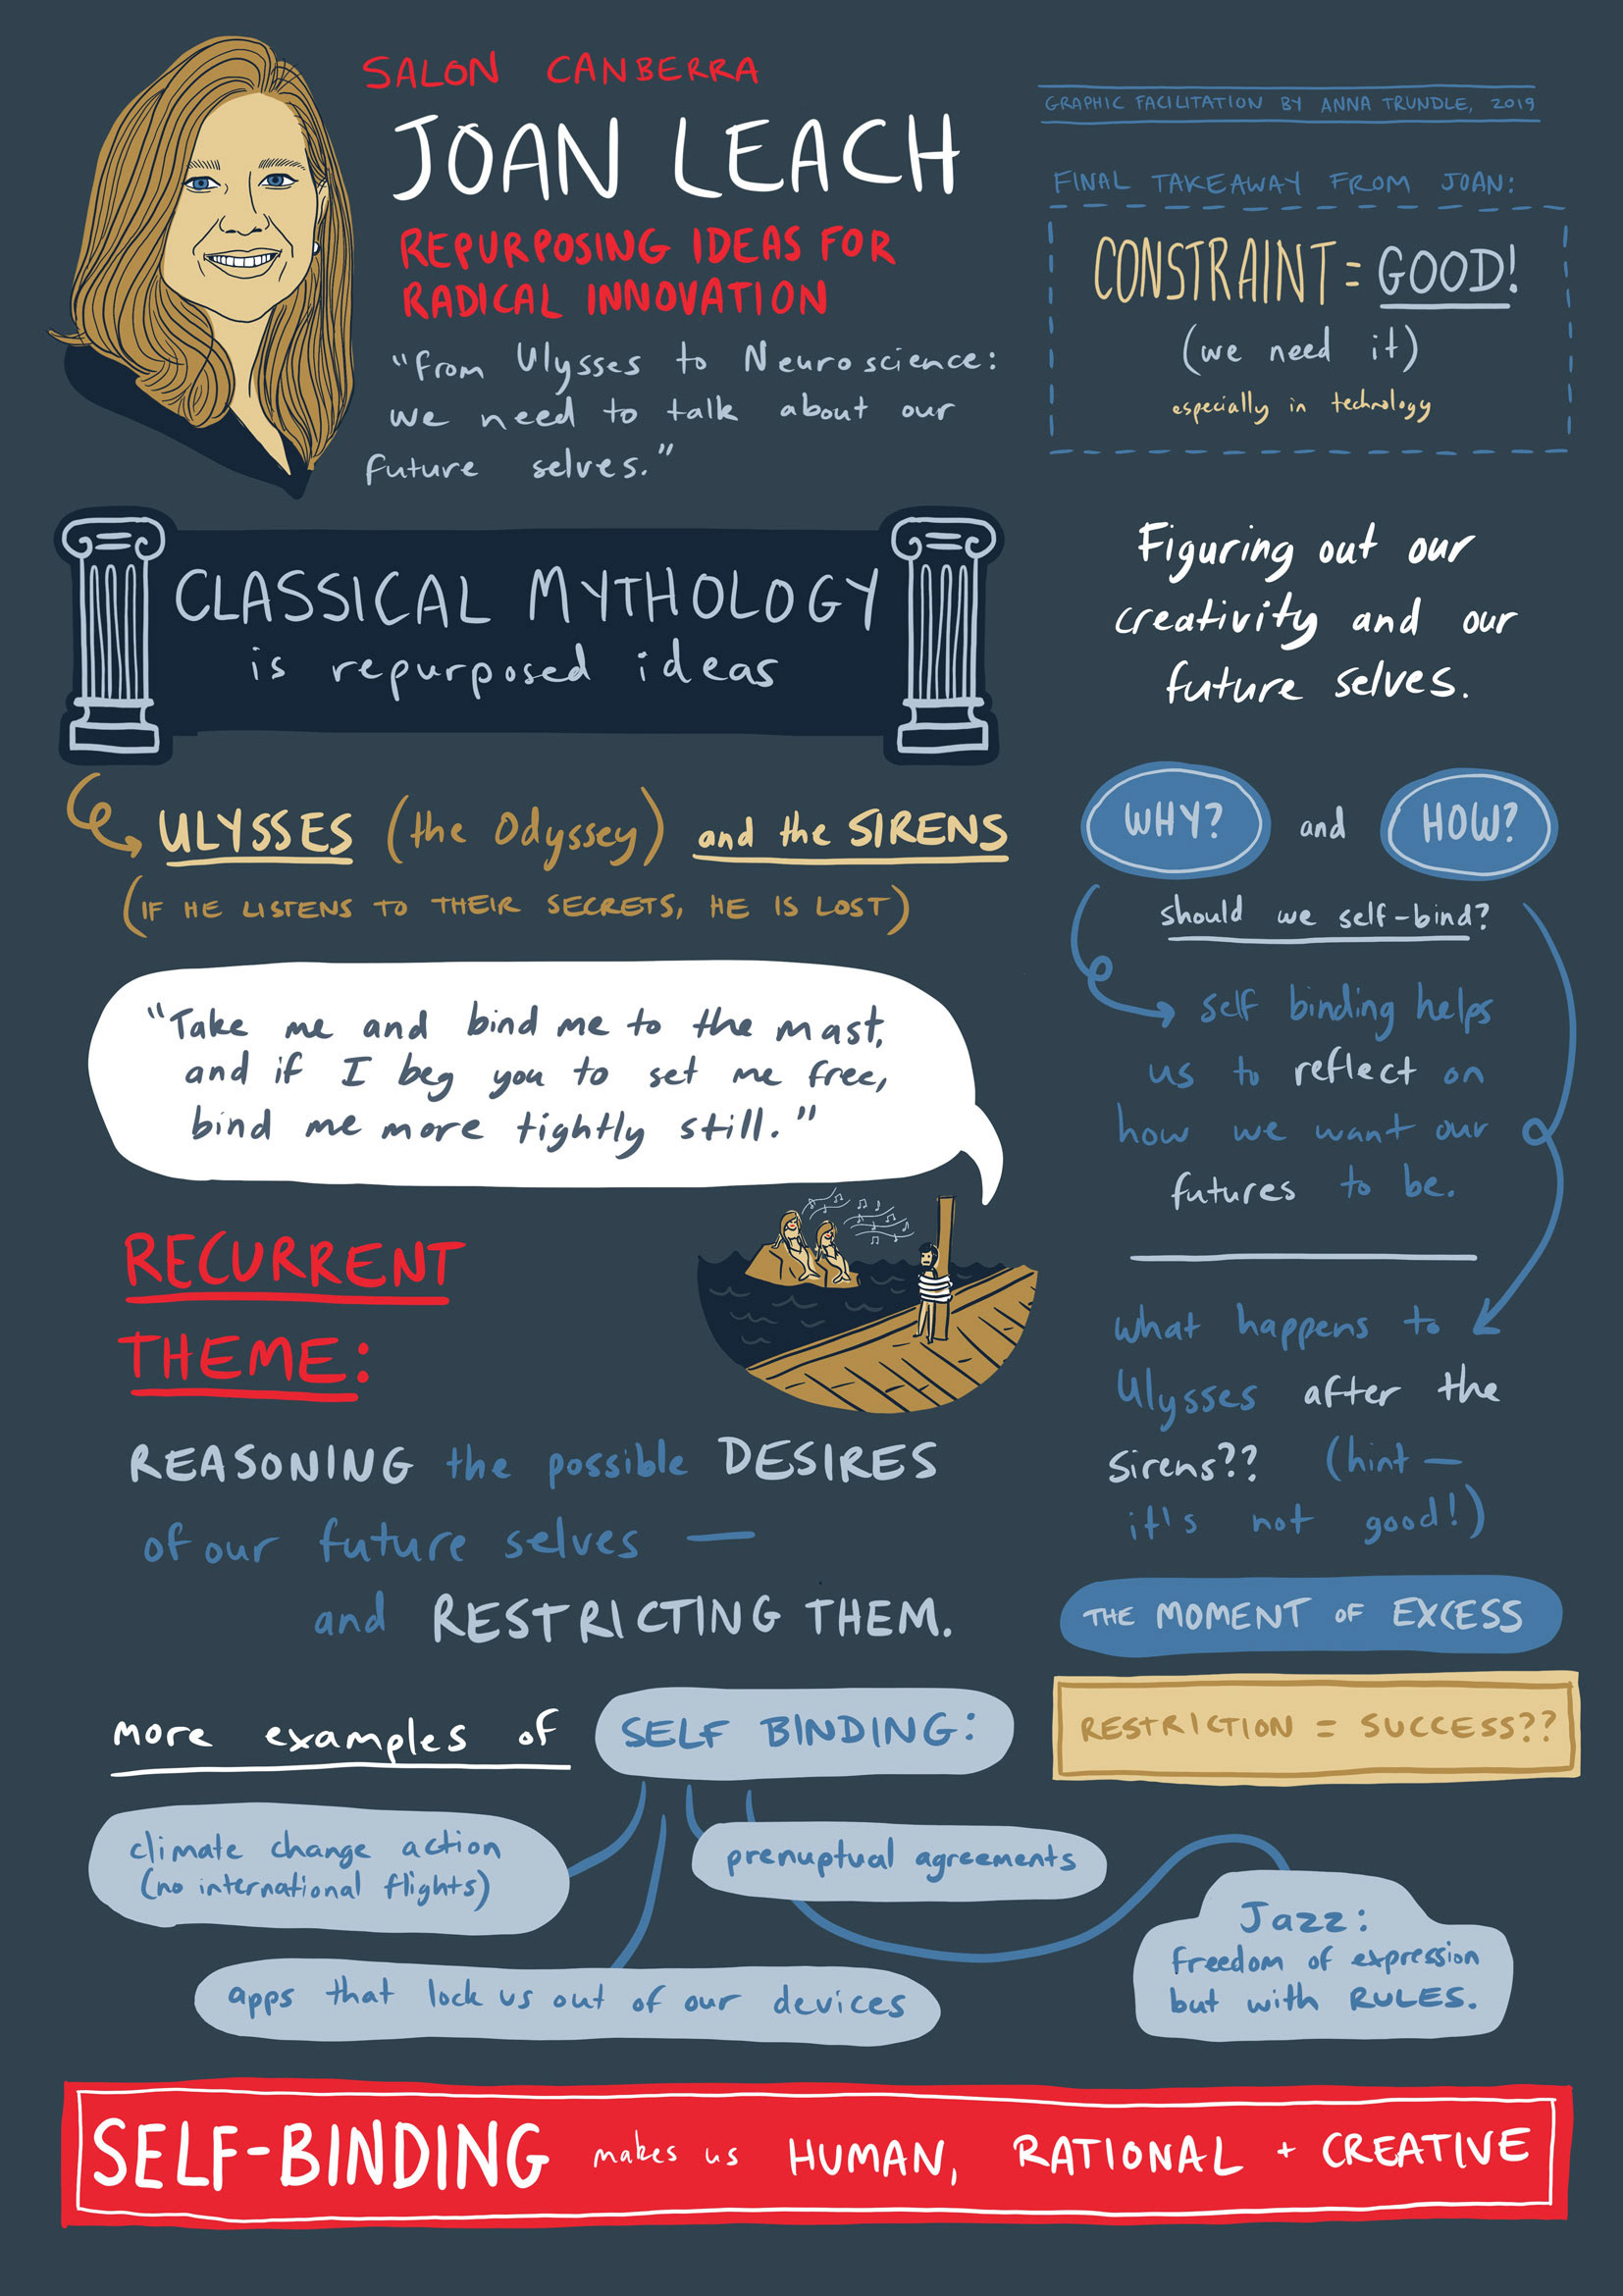 SALON CANBERRA
JOAN LEACH
REPURPOSING IDEAS FOR
RADICAL INNOVATION
"From Ulysses to Neuroscience:
we need to talk about our
future selves."
GRAPHIC FACILITATION BY ANNA TRUNDLE, 2019
FINAL TAKEAWAY FROM JOAN:
CONSTRAINT = GOOD!
(we need it)
especially in technology
CLASSICAL MYTHOLOGY
is repurposed ideas
ULYSSES (the Odyssey) and the SIRENS
(IF HE LISTENS TO THEIR SECRETS, HE IS LOST)
"Take me and bind me to the mast,
and if I beg you to set me free,
bind me more tightly still."
RECURRENT
THEME:
REASONING the possible DESIRES
of our future selves —
and RESTRICTING THEM.
Figuring out our
creativity and our
future selves.
WHY? and HOW?
should we self-bind?
self binding helps
us to reflect on
how we want our
futures to be.
what happens to
Ulysses after the
Sirens?? (hint —
it's not good!)
THE MOMENT OF EXCESS
RESTRICTION = SUCCESS??
more examples of SELF BINDING:
climate change action
(no international flights)
prenuptual agreements
apps that lock us out of our devices
Jazz:
freedom of expression
but with RULES.
SELF-BINDING makes us HUMAN, RATIONAL + CREATIVE